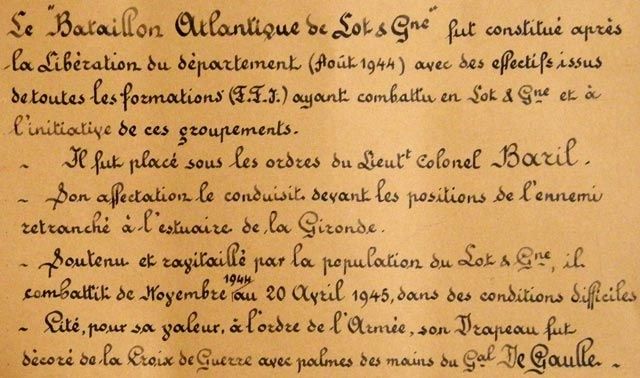 Le "Bataillon Atlantique de Lot & Gne" fut constitué après
la Libération du département (Août 1944) avec des effectifs issus
de toutes les formations (F.F.I.) ayant combattu en Lot & Gne et à
l'initiative de ces groupements.
- Il fut placé sous les ordres du Lieutt Colonel Baril.
- Son affectation le conduisit devant les positions de l'ennemi
retranché à l'estuaire de la Gironde.
- Soutenu et ravitaillé par la population du Lot & Gne, il
combattit de Novembre 1944 au 20 Avril 1945, dans des conditions difficiles
- Cité, pour sa valeur, à l'ordre de l'Armée, son Drapeau fut
décoré de la Croix de Guerre avec palmes des mains du Gal De Gaulle. -